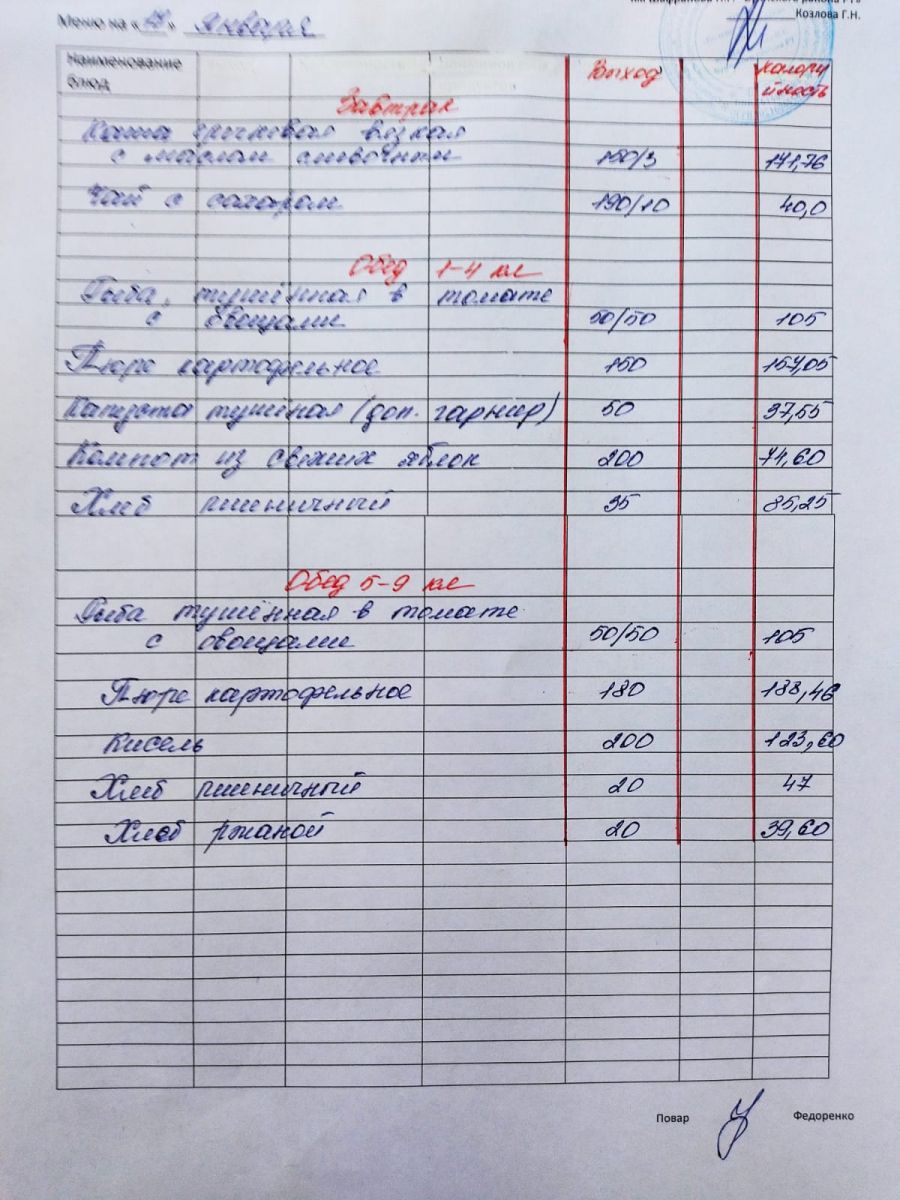 Козлова Г.Н.
Меню на « » января
Наименование
блюд
Выход
калори
йность
Завтрак
Каша гречневая вязкая
с маслом сливочным 150/3 171,76
Чай с сахаром 190/10 40,0
Обед 1-4 кл
Рыба, тушённая в томате
с овощами 50/50 105
Пюре картофельное 150 157,05
Капуста тушёная (доп. гарнир) 50 37,55
Компот из свежих яблок 200 74,60
Хлеб пшеничный 35 85,25
Обед 5-9 кл
Рыба тушённая в томате
с овощами 50/50 105
Пюре картофельное 180 188,46
Кисель 200 123,60
Хлеб пшеничный 20 47
Хлеб ржаной 20 39,60
Повар Федоренко